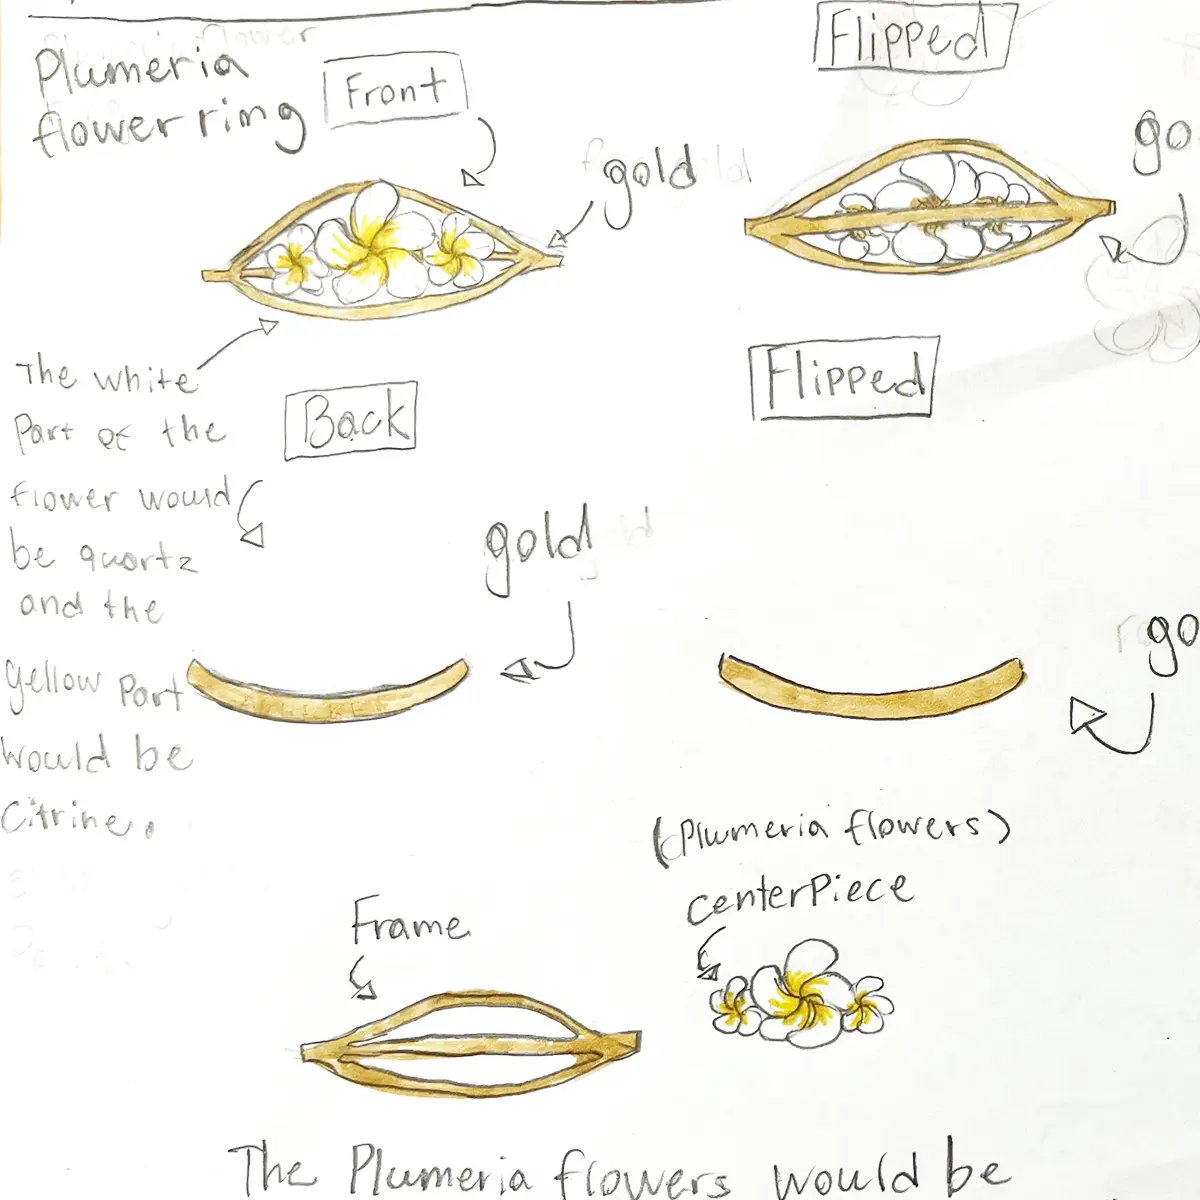 Plumeria
flower ring
Front
gold
Flipped
go
The white
Part of the
flower would
be quartz
and the
yellow Part
would be
Citrine.
Back
gold
Flipped
go
(Plumeria flowers)
centerPiece
Frame
The Plumeria flowers would be